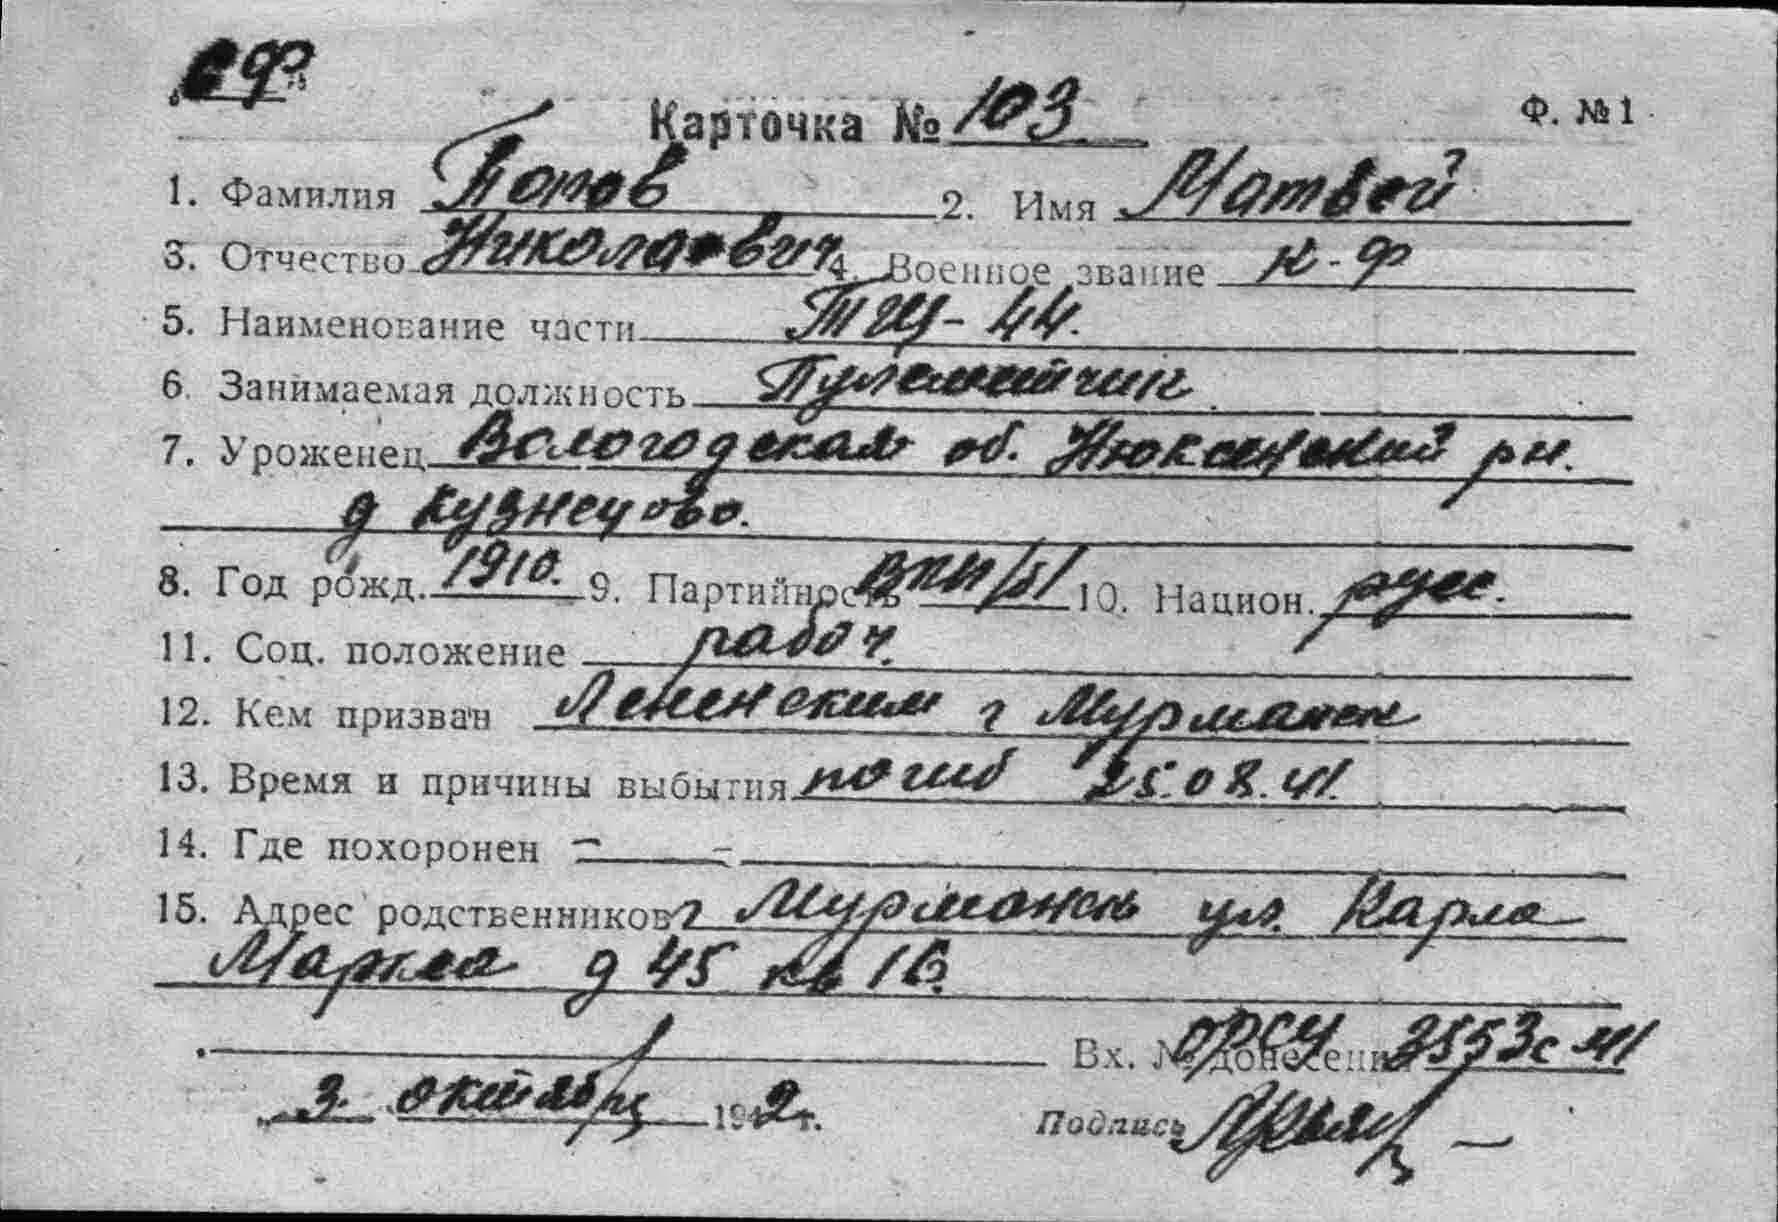 СФ
Карточка № 103 Ф. № 1
1. Фамилия Попов 2. Имя Матвей
3. Отчество Николаевич 4. Военное звание к-ф
5. Наименование части ТЩ-44.
6. Занимаемая должность Пулеметчик
7. Уроженец Вологодская об. Нюксенский рн.
д Кузнецово.
8. Год рожд. 1910. 9. Партийность ВКП/б/ 10. Национ. русс.
11. Соц. положение рабоч.
12. Кем призван Ленинским г Мурманск
13. Время и причины выбытия погиб 25.08.41.
14. Где похоронен — —
15. Адрес родственников г Мурманск ул. Карла
Маркса д 45 кв 16.
Вх. № донесения ОРСУ 3553с 41
3 октября 1942 г. Подпись